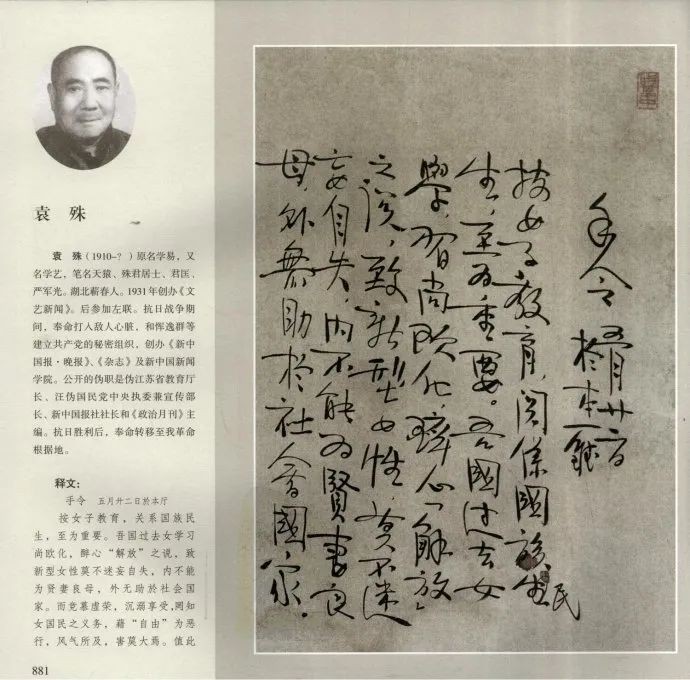 袁 殊
袁 殊（1910-？）原名学易，又
名学艺，笔名天猿、殊君居士、君匡、
严军光。湖北蕲春人。1931年创办《文
艺新闻》。后参加左联。抗日战争期
间，奉命打入敌人心脏，和恽逸群等
建立共产党的秘密组织，创办《新中
国报·晚报》、《杂志》及新中国新闻
学院。公开的伪职是伪江苏省教育厅
长、汪伪国民党中央执委兼宣传部
长、新中国报社社长和《政治月刊》主
编。抗日胜利后，奉命转移至我革命
根据地。
释文：
手令 五月廿二日於本厅
按女子教育，关系国族民
生，至为重要。吾国过去女学习
尚欧化，醉心“解放”之说，致
新型女性莫不迷妄自失，内不能
为贤妻良母，外无助於社会国
家。而竞慕虚荣，沉溺享受，罔知
女国民之义务，藉“自由”为恶
行，风气所及，害莫大焉。值此
881
手令 五月廿二日
於本廳
按女子教育，関係國族民
生，至为重要。吾國过去女
學，習尚欧化，醉心「解放」
之说，致新型女性，莫不迷
妄自失，内不能为賢妻良
母，外無助於社會國家。